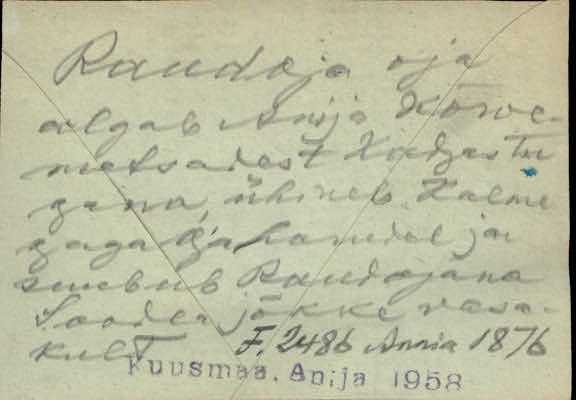 Raudoja oja
algab Anija Kõrve-
metsadest Kadjastu
gana, ühineb Kalme
gaga Paharidel ja
suubub Raudojana
Soodla jõkke vasa-
kult F. 2486 Annia 1876
Kuusmaa. Anija 1958